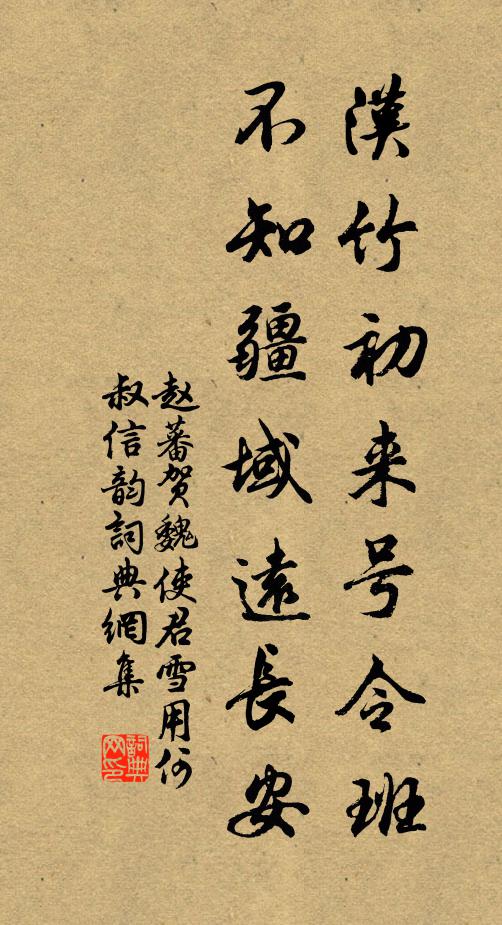 漢竹初来号令班
不知疆域遠長安
赵蕃贺魏使君雪用何
叔信韵詞典網集
詞典网印